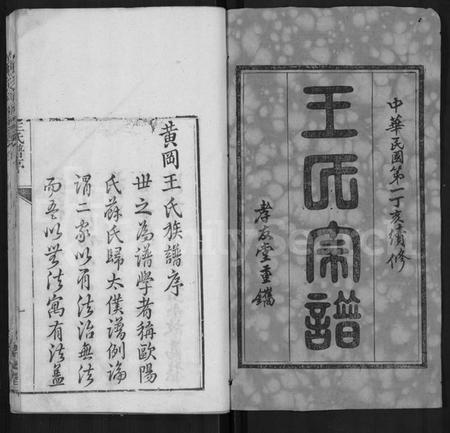 中華民國第一丁亥續修
王氏宗譜
孝友堂重鐫
黃岡王氏族譜序
世之為譜學者稱歐陽
氏蘇氏歸太僕譜例論
謂二家以有法治無法
而吾以無法寓有法蓋